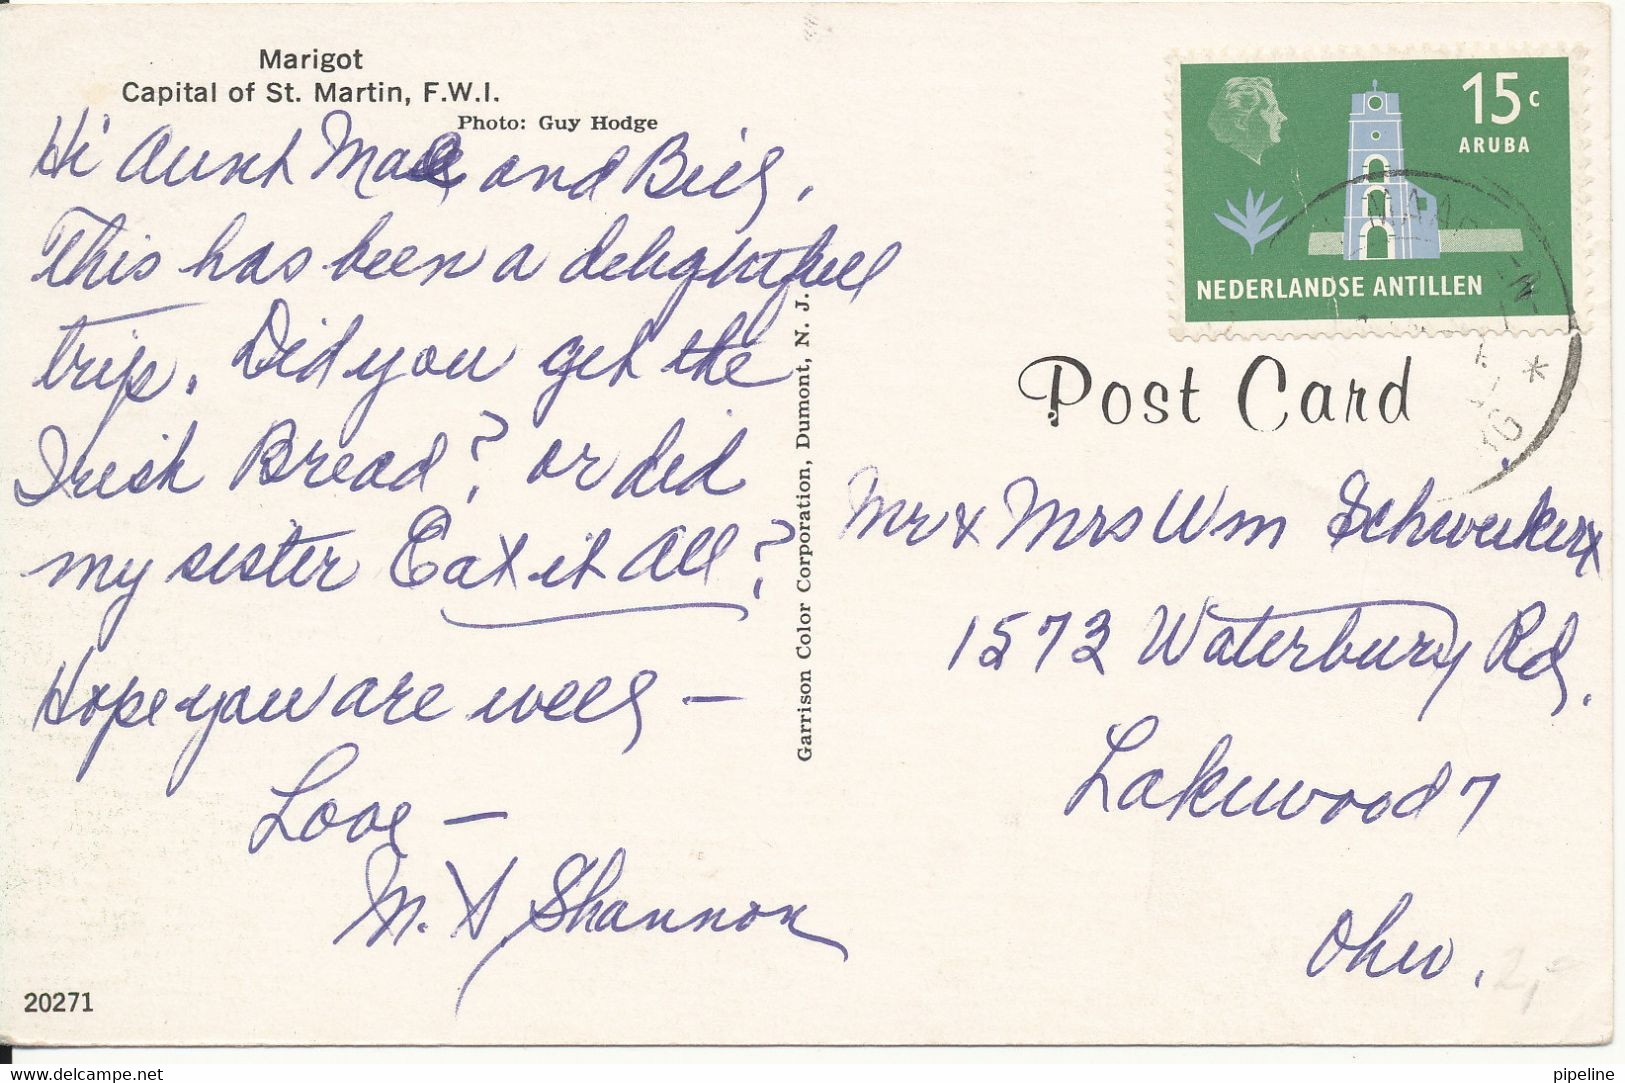 Marigot
Capital of St. Martin, F.W.I.
Photo: Guy Hodge
Hi Aunt Mae and Bill,
This has been a delightfull
trip. Did you get the
Irish Bread? or did
my sister Eat it all?
Hope you are well –
Love –
M. Shannon
20271
Garrison Color Corporation, Dumont, N. J.
15 c
ARUBA
NEDERLANDSE ANTILLEN
Post Card
Mr & Mrs Wm
1573 Waterbury Rd,
Lakewood 7
Ohio.
delcampe.net
pipeline